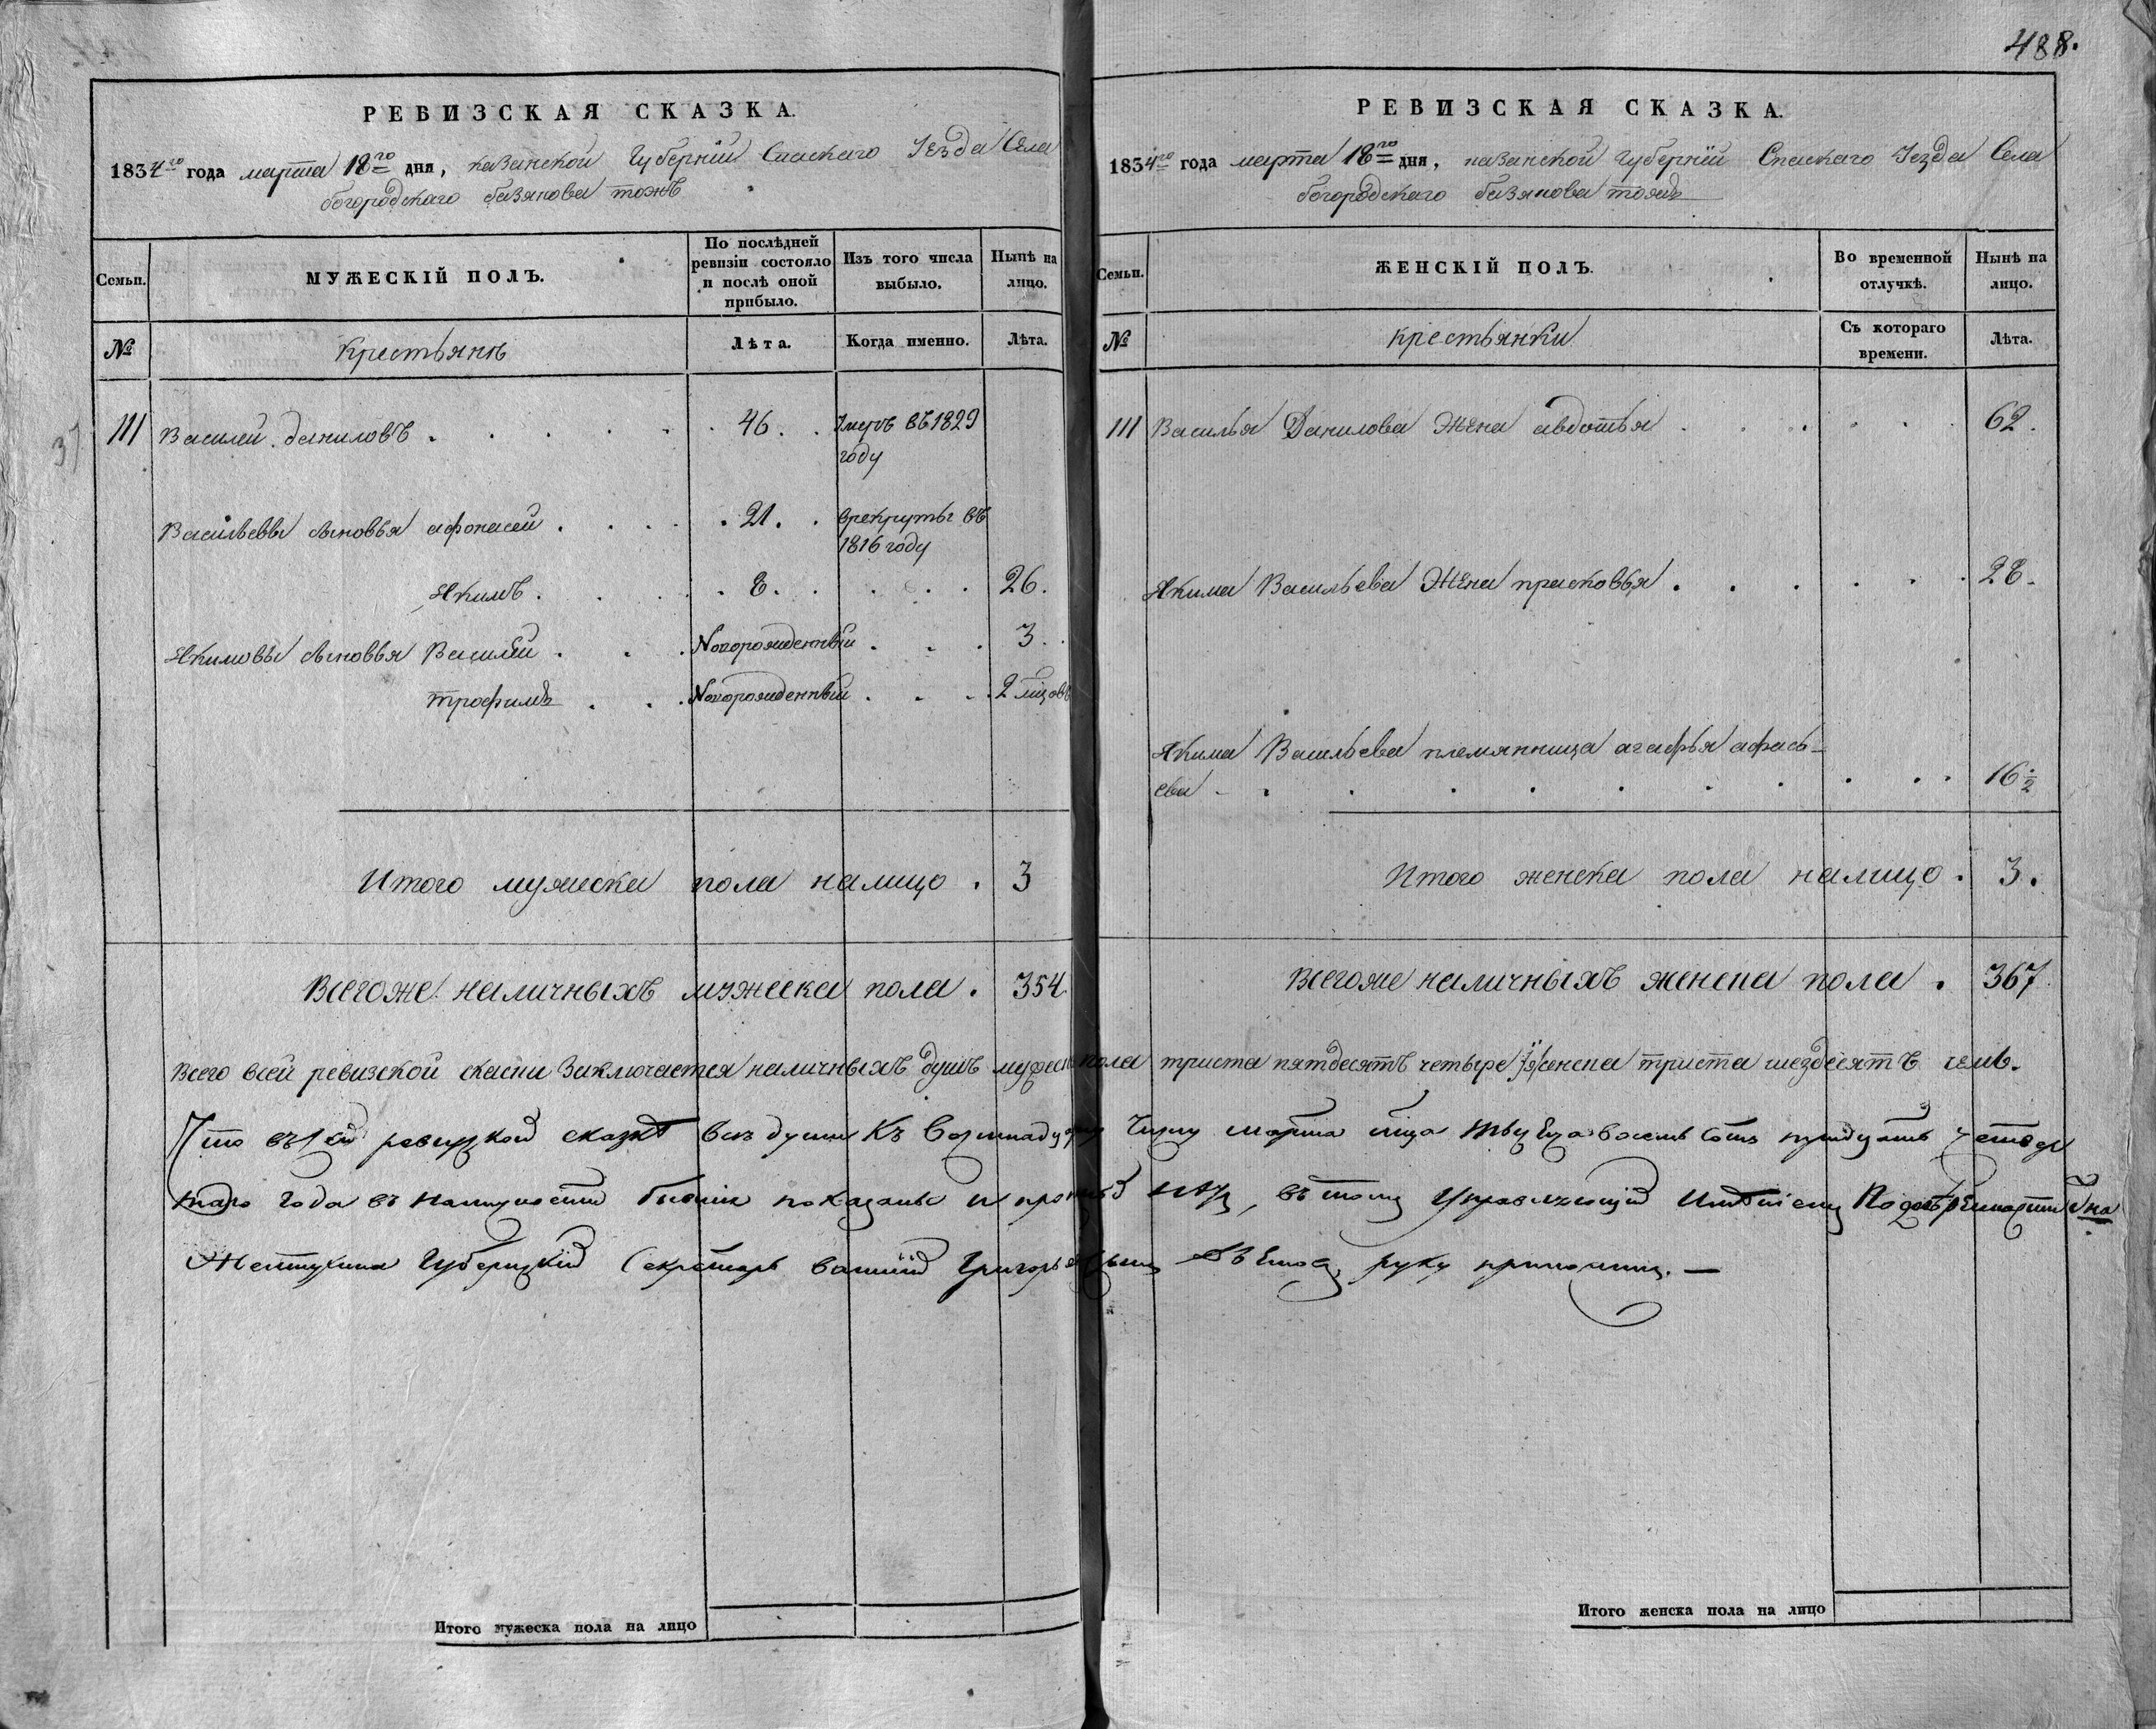 488.
РЕВИЗСКАЯ СКАЗКА.
1834го года марта 18го дня, казанской Губернїи Спаскаго Уезда Села
богородскаго базянова тожъ
Семьи.
МУЖЕСКІЙ ПОЛЪ.
По послѣдней ревизіи состояло и послѣ оной прибыло.
Изъ того числа выбыло.
Нынѣ на лицо.
№
Крестьянъ
Лѣта.
Когда именно.
Лѣта.
111 Василей даниловъ . 46. Умеръ въ 1829
году
Васильевы сыновья афонасей . 21. врекруты въ
1816 году
Якимъ . 8. 26.
Якимовы сыновья Василей . Новорожденный . 3.
трофимъ . Новорожденный . 2 мцовъ
Итого мужска пола налицо . 3
Всегоже наличныхъ мужеска пола . 354
РЕВИЗСКАЯ СКАЗКА.
1834го года марта 18го дня, казанской Губернїи Спаскаго Уезда Села
богородскаго базянова тожъ
Семьи.
ЖЕНСКІЙ ПОЛЪ.
Во временной отлучкѣ.
Нынѣ на лицо.
№
крестьянки
Съ котораго времени.
Лѣта.
111 Василья Данилова Жена авдотья . 62.
Якима Васильева Жена прасковья . 28.
Якима Васильева племянница агафья афась-
ева . 16 1/2
Итого женска пола налицо . 3.
Всегоже наличныхъ женска пола . 367.
Всего всей ревизской скаски Заключается наличныхъ душъ мужеск пола триста пятдесятъ четыре женска триста шездесятъ семь.
Что въ сей ревизкой сказкѣ всѣ души Къ Восемнадцатому Числу марта мца тысеча восемь сотъ тридцать четвер
таго года въ наличности бывшїе показаны и нетъ, въ томъ Управляющїй Имѣнїемъ
Губернскїй Секретарь руку приложилъ. —
Итого мужеска пола на лицо
Итого женска пола на лицо